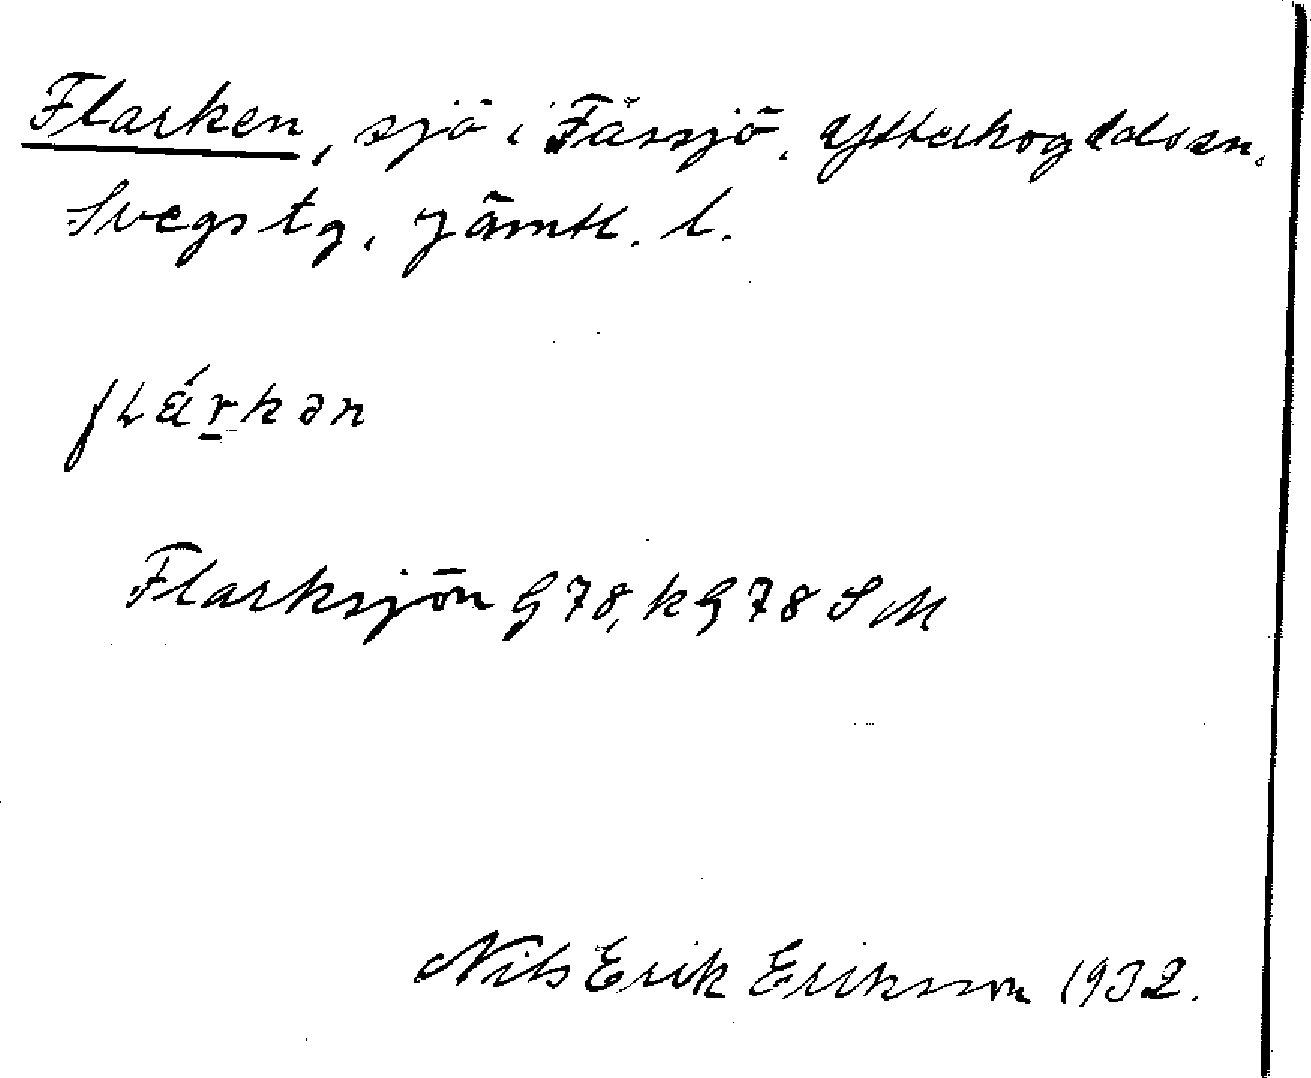 Flarken, sjö i Fässjö, Ytterhogdals sn.
Svegs tg, Jämtl. l.
flárkən
Flarksjön G 78, k G 78 S M
Nils Erik Eriksson 1932.